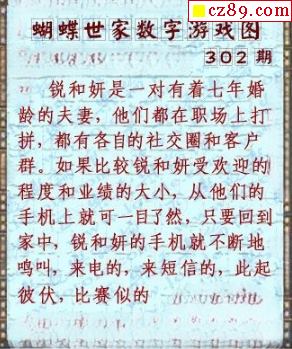 cz89.com
蝴蝶世家数字游戏图
302 期
锐和妍是一对有着七年婚
龄的夫妻，他们都在职场上打
拼，都有各自的社交圈和客户
群。如果比较锐和妍受欢迎的
程度和业绩的大小，从他们的
手机上就可一目了然，只要回到
家中，锐和妍的手机就不断地
鸣叫，来电的，来短信的，此起
彼伏，比赛似的